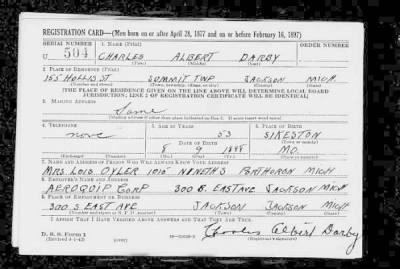 REGISTRATION CARD—(Men born on or after April 28, 1877 and on or before February 16, 1897)
SERIAL NUMBER 1. NAME (Print) ORDER NUMBER
U 504 CHARLES ALBERT DARBY
2. PLACE OF RESIDENCE (Print)
155 HOLLIS ST SUMMIT TWP JACKSON MICH
[THE PLACE OF RESIDENCE GIVEN ON THE LINE ABOVE WILL DETERMINE LOCAL BOARD
JURISDICTION; LINE 2 OF REGISTRATION CERTIFICATE WILL BE IDENTICAL]
3. MAILING ADDRESS
Same
[Mailing address if other than place indicated on line 2. If same insert word same]
4. TELEPHONE 5. AGE IN YEARS 6. PLACE OF BIRTH
none 53 SIKESTON
DATE OF BIRTH (Town or county)
8 9 1888 MO.
(Exchange) (Number) (Mo.) (Day) (Yr.) (State or country)
7. NAME AND ADDRESS OF PERSON WHO WILL ALWAYS KNOW YOUR ADDRESS
MRS. LOIS OYLER 1015 ST PORT HURON MICH
8. EMPLOYER'S NAME AND ADDRESS
AEROQUIP CORP 300 S. EAST AVE JACKSON MICH
9. PLACE OF EMPLOYMENT OR BUSINESS
300 S EAST AVE JACKSON JACKSON MICH
(Number and street or R. F. D. number) (Town) (County) (State)
I AFFIRM THAT I HAVE VERIFIED ABOVE ANSWERS AND THAT THEY ARE TRUE.
D. S. S. Form 1 Charles Albert Darby
(Revised 4-1-42) (over) (Registrant's signature)